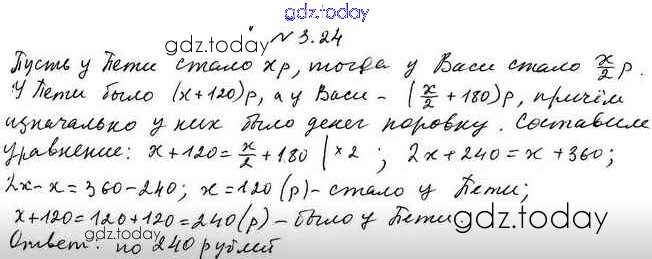 gdz.today
№ 3.24
gdz.today
Пусть у Пети стало xр, тогда у Васи стало x/2 р.
У Пети было (x+120)р, а у Васи - (x/2 + 180)р, причём
изначально у них было денег поровну. Составим
уравнение: x+120 = x/2 + 180 | ×2 ; 2x+240 = x+360;
2x-x = 360-240; x = 120 (р) - стало у Пети;
x+120 = 120+120 = 240 (р) - было у Пети
gdz.today
gdz.today
Ответ: по 240 рублей